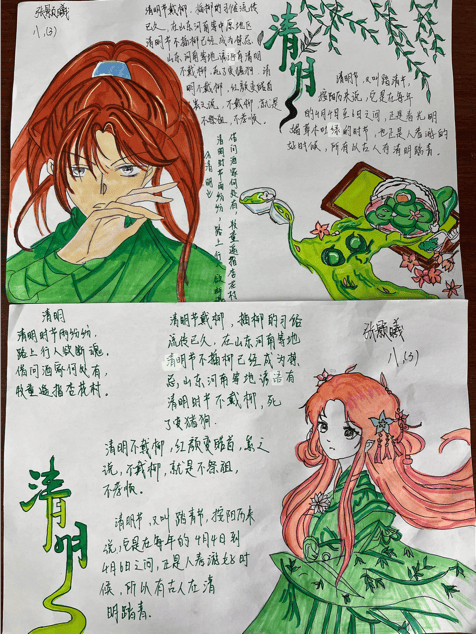 张颢曦
八.(3)
清明节戴柳,插柳的习俗流传
已久,在山东河南等中原地区
清明节不插柳已经成为禁忌,
山东,河南等地谚语有清明
不戴柳,死了变猪狗.清
明不戴柳,红颜变皓首
之说,不戴柳,就是
不祭祖,不孝悌。
清明
清明节,又叫踏青节,
按阳历来说,它是在每年
的4月4日至6日之间,正是春光明
媚草木吐绿的时节,也正是人春游的
好时候,所以古人有清明踏青。
清明
清明时节雨纷纷,路上行人欲断魂
借问酒家何处有,牧童遥指杏花村
清明
清明时节雨纷纷,
路上行人欲断魂。
借问酒家何处有,
牧童遥指杏花村。
清明节戴柳,插柳的习俗
流传已久,在山东河南等地
清明节不插柳已经成为禁
忌,山东河南等地谚语有
清明时节不戴柳,死
了变猪狗.
清明不戴柳,红颜变皓首,之
说,不戴柳,就是不祭祖,
不孝悌。
清明节,又叫踏青节,按阳历来
说,它是在每年的4月4日到
4月6日之间,正是人春游好时
候,所以有古人在清
明踏青.
清明
张颢曦
八.(3)